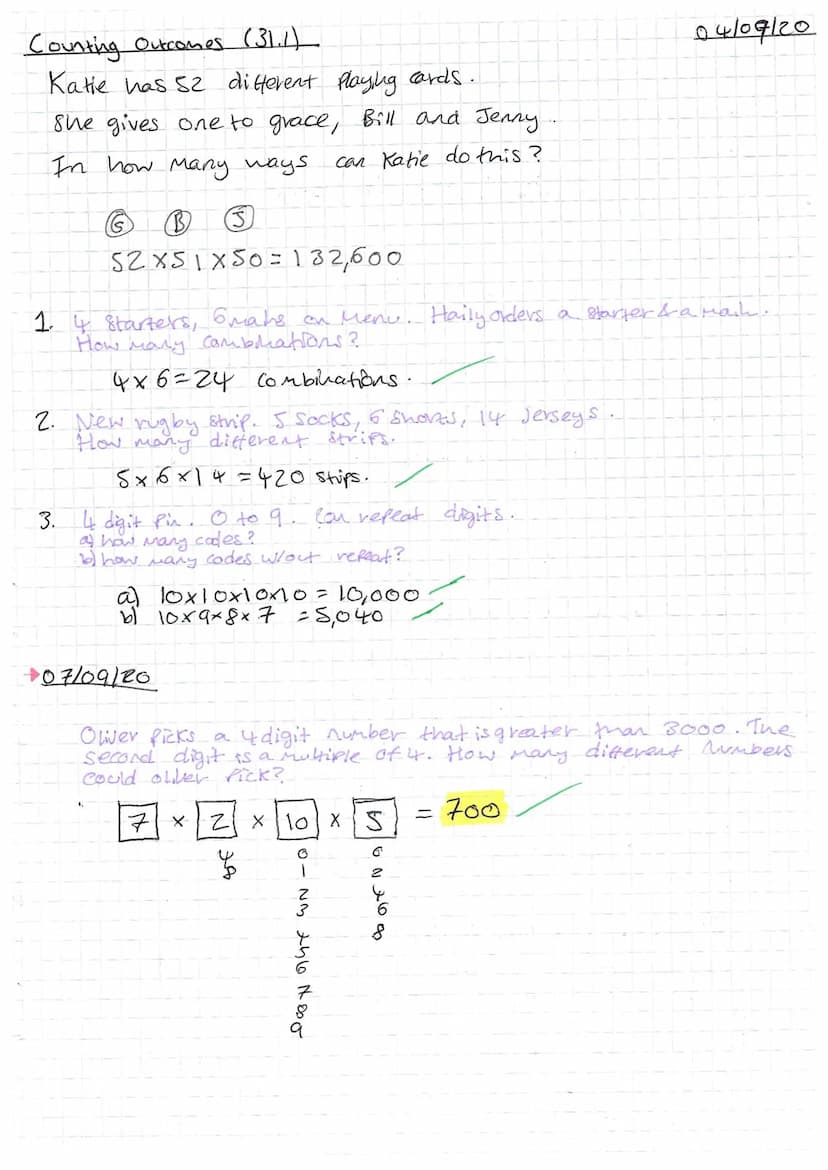 Counting Outcomes (31.1)
04/09/20
Katie has 52 different playing cards.
She gives one to grace, Bill and Jenny.
In how many ways can Katie do this?
G B J
52 x 51 x 50 = 132,600
1. 4 starters, 6 mains on menu. Haily orders a starter & a main.
How many combinations?
4 x 6 = 24 combinations.
2. New rugby strip. 5 socks, 6 shorts, 14 jerseys.
How many different strips.
5 x 6 x 14 = 420 strips.
3. 4 digit pin. 0 to 9. Can repeat digits.
a) how many codes?
b) how many codes w/out repeat?
a) 10x10x10x10 = 10,000
b) 10x9x8x7 = 5,040
07/09/20
Oliver picks a 4 digit number that is greater than 3000. The
second digit is a multiple of 4. How many different numbers
could oliver pick?
7 x 2 x 10 x 5 = 700
4 0 0
8 1 2
2 4
3 6
4 8
5
6
7
8
9